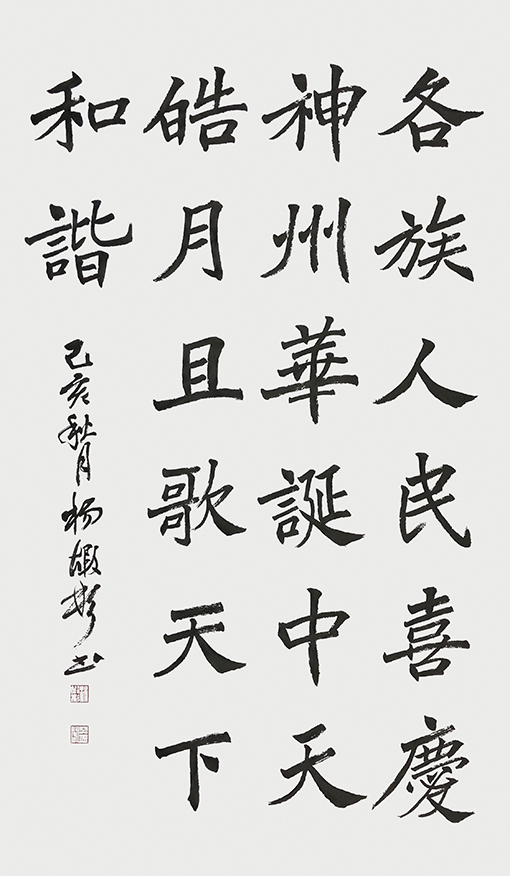 各族人民喜慶
神州華誕中天
皓月且歌天下
和諧
己亥秋月楊